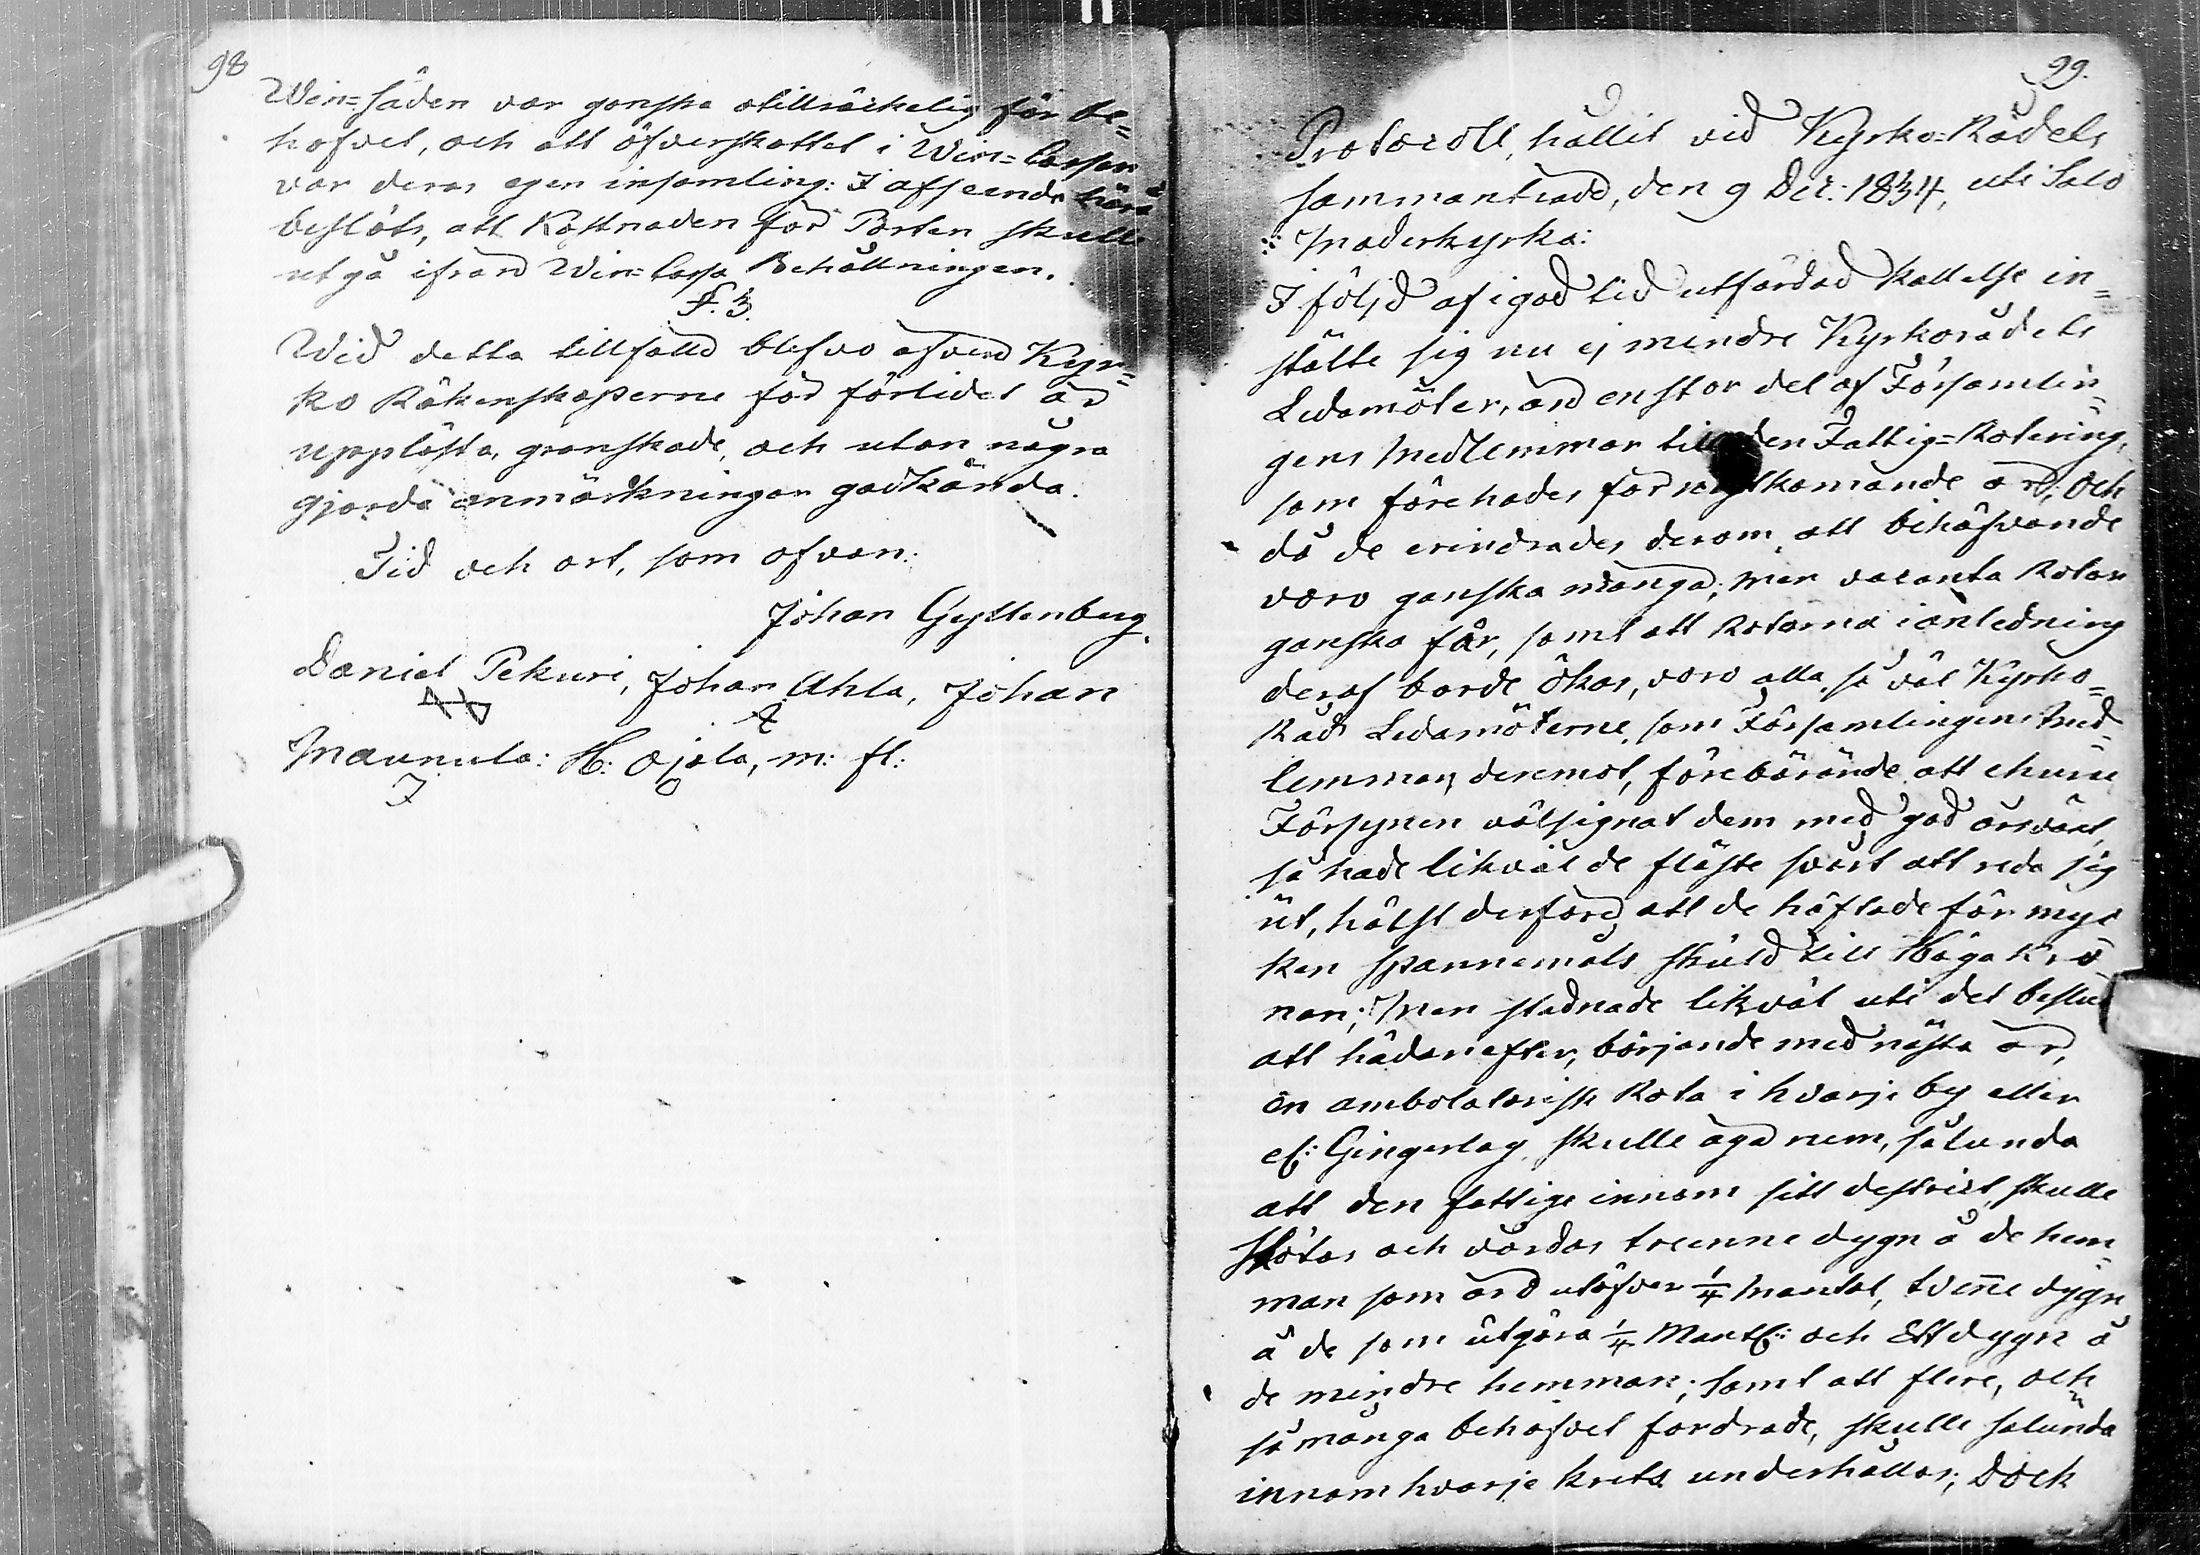 98
Win=säden var ganska otillräckelig för be=
hofvet, och att öfverskottet i Win=Cassan
var deras egen insamling: I afseende härå
beslöts, att Kostnaden för Porten skulle
utgå ifrån Win=Cassa Behållningen.
§. 3.
Wid detta tillfälle blefvo äfven Kyr=
ko Räkenskaperne för förlidet år
uppläste, granskade, och utan några
gjorda anmärkningar godkända.
Tid och ort, som ofvan:
Johan Gyllenberg.
Daniel Pekuri, Johan Ahla, Johan
Maunula: H: Ojala, m: fl:
99.
Protocoll, hållit vid Kyrko=Rådets
sammanträde, den 9 Dec: 1834, uti Salo
Moderkyrka:
I följd af i god tid utfärdad kallelse in=
stälte sig nu ej mindre Kyrkorådets
Ledamöter, än en stor del af Församlin=
gens Medlemmar till den Fattig=Rotering,
som förehades för nästkomande år; och
då de erindrades derom, att behöfvande
voro ganska många; men vacanta Rotar
ganska får, samt att Rotarna i anledning
deraf borde ökas, voro alla så väl Kyrko=
Råds Ledamöterne, som Församlingens Med=
lemmar, deremot, förebärande att ehuru
Försynen välsignat dem med god årsväxt,
så hade likväl de fläste svårt att reda sig
ut, hälst derföre, att de häftade för myc
ken spannemåls skuld till Höga Kro
nan; Men stadnade likväl uti det beslut
att hädanefter, börjande med nästa år,
en ambolatorisk Rota i hvarje by eller
el: Gingerlag, skulle äga rum, sålunda
att den fattige innom sitt destrict skulle
skötas och vårdas trenne dygn å de hem=
man som äro utöfver 1/4 Mantal, tvenne dygn
å de som utgöra 1/4 Mantl: och Ett dygn å
de mindre hemman; samt att flere, och
så många behofvet fordrade, skulle sålunda
innom hvarje krets underhållas; Dock